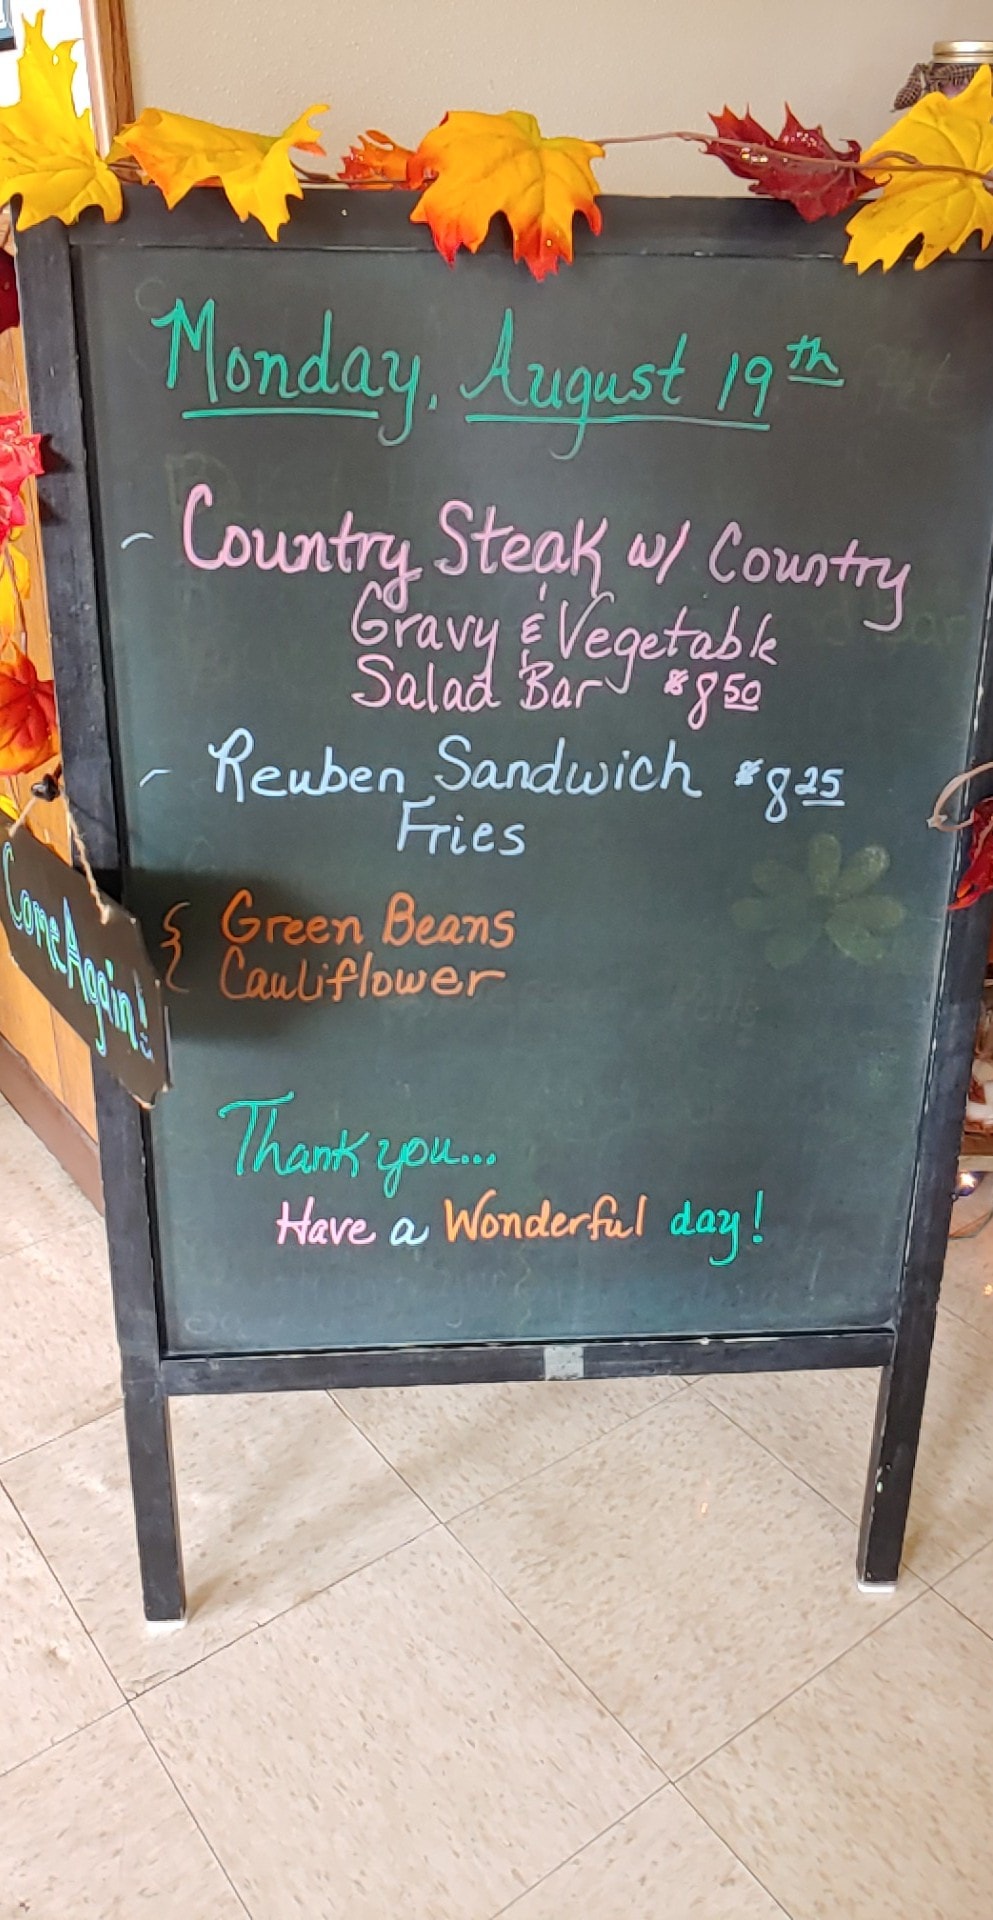 Monday, August 19th
- Country Steak w/ Country
Gravy & Vegetable
Salad Bar $8.50
- Reuben Sandwich $8.25
Fries
{ Green Beans
Cauliflower
Come Again!
Thank you...
Have a Wonderful day!